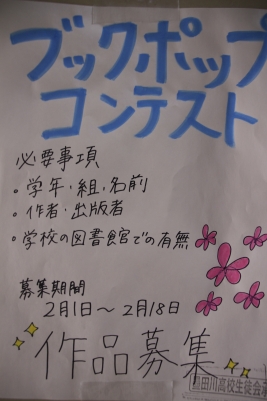 ブックポップ
コンテスト
必要事項
・学年・組、名前
・作者・出版者
・学校の図書館での有無
募集期間
2月1日～2月18日
作品募集
田川高校生徒会